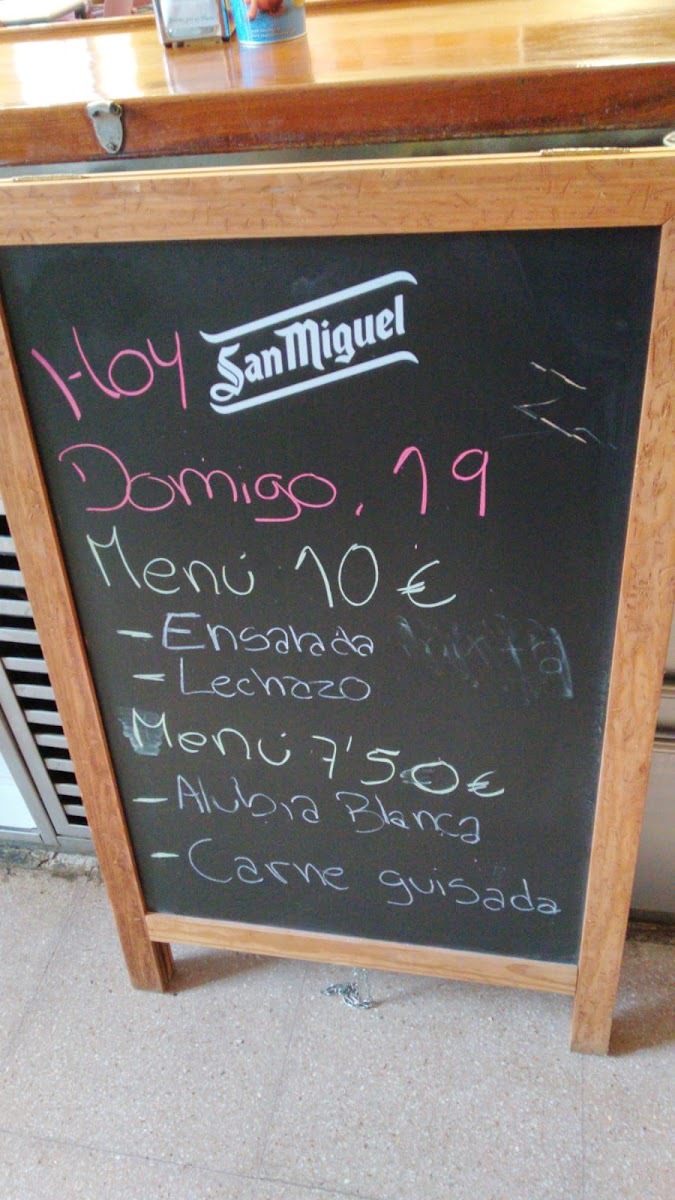 Hoy San Miguel
Domigo, 19
Menú 10 €
- Ensalada mixta
- Lechazo
Menú 7'50 €
- Alubia Blanca
- Carne guisada